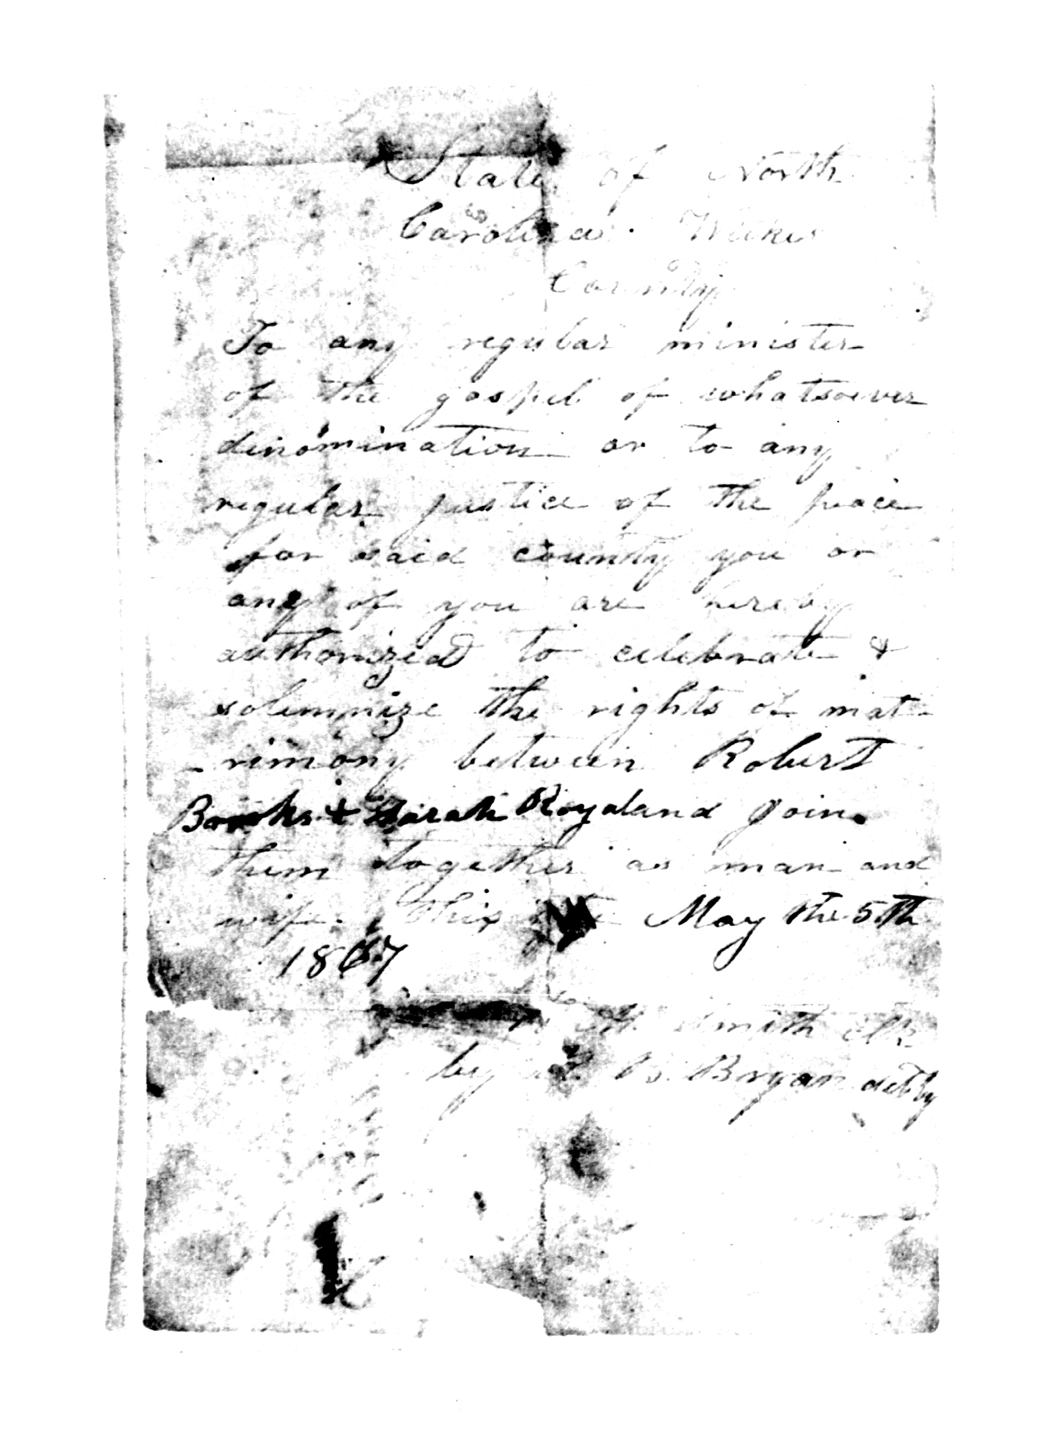 State of North
Carolina Wilkes
County
To any regular minister
of the gospel of whatsoever
denomination or to any
regular justice of the peace
for said county you or
any of you are hereby
authorized to celebrate &
solemnize the rights of mat-
-rimony between Robert
& Sarah Royal and join
them together as man and
wife this May the 5th
1867
Smith Clk
by B. Bryan dety